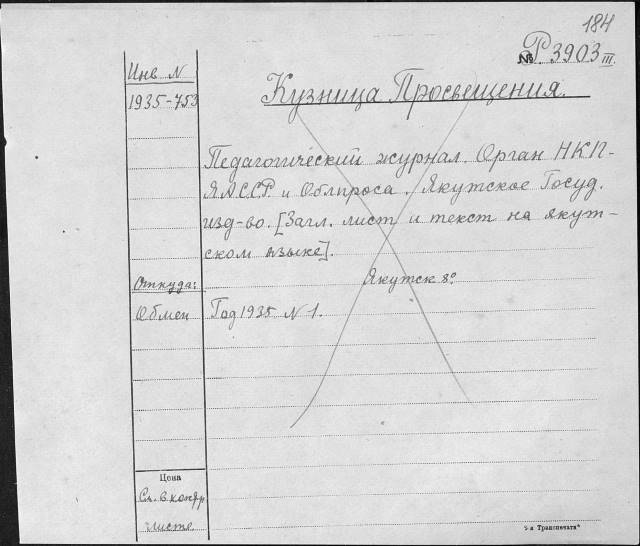 184
№ Р. 3903 III.
Инв N
1935-753
Кузница Просвещения.
Педагогический журнал. Орган НКП-
ЯАССР. и Облпроса. Якутское Госуд.
изд-во. [Загл. лист и текст на якут-
ском языке].
Якутск 8°.
Откуда:
Обмен
Год 1935 N 1.
Цена
См. в контр.
листе.
Транспечати"